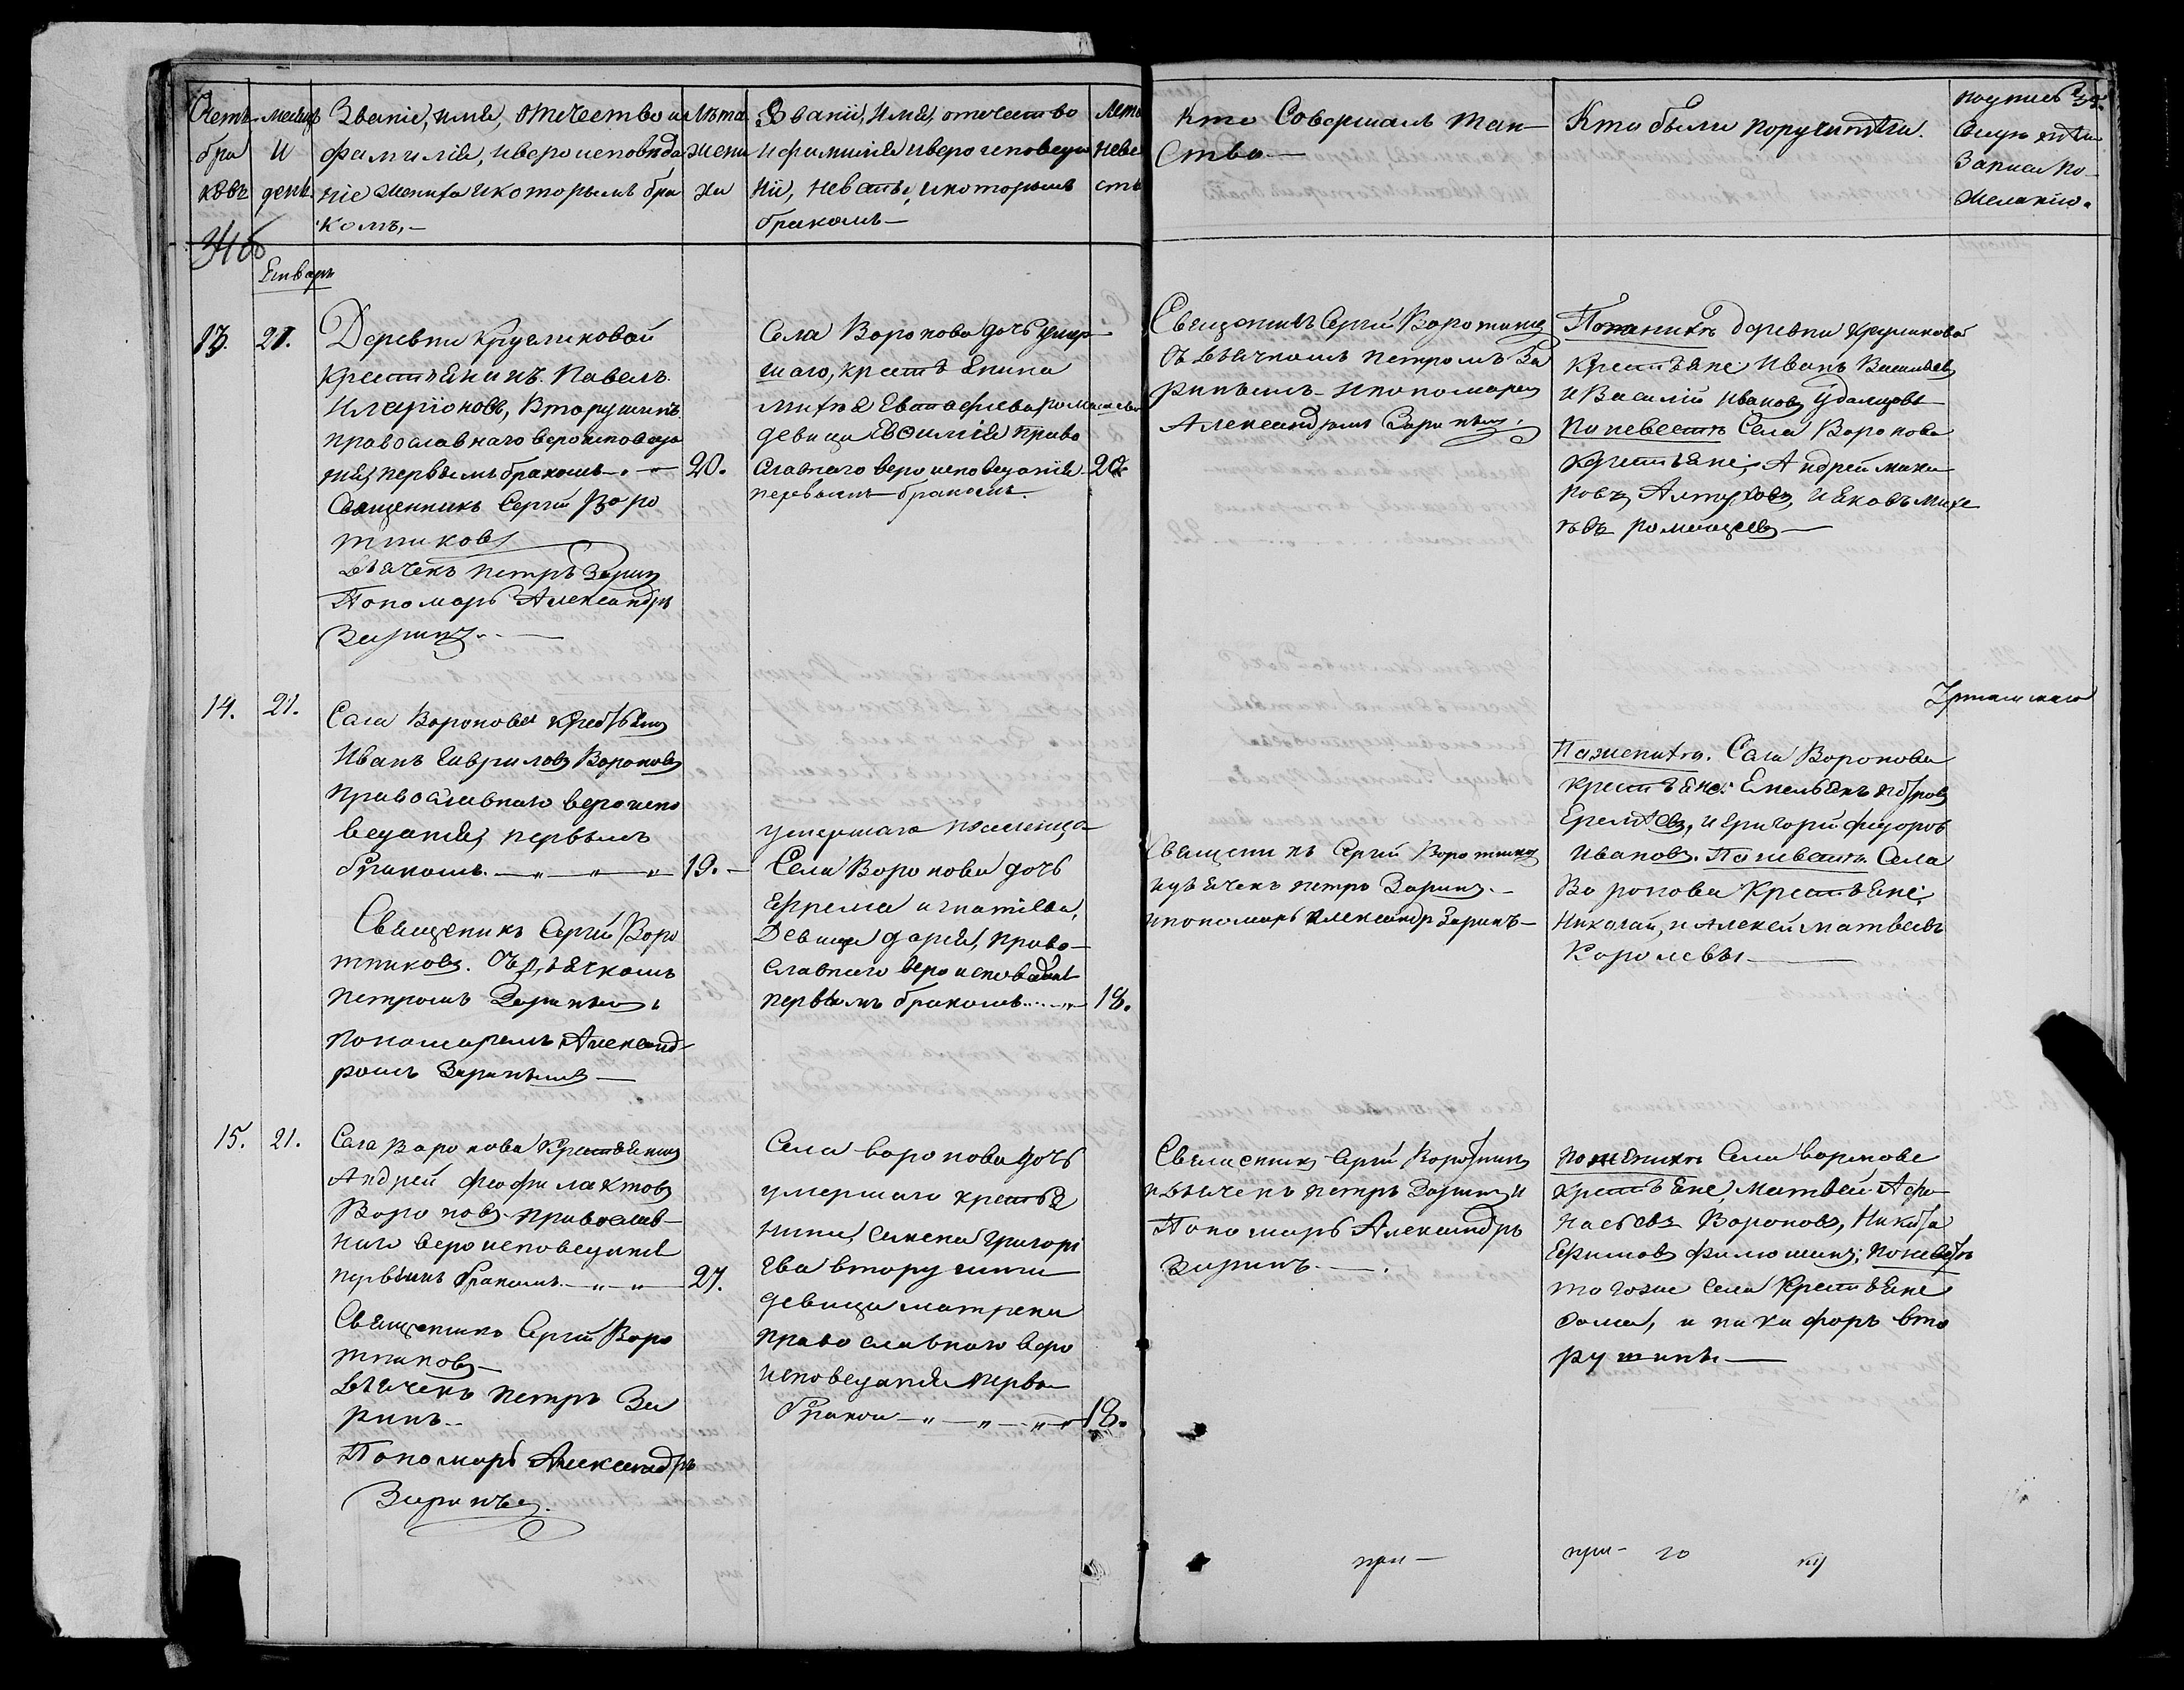 Счетъ
бра
ковъ
месяцъ
и
день.
Званіе, имя, отчество и
фамилія, и вероисповѣда
ніе жениха и которымъ бра
комъ,—
Лѣта
жени
ха
Званіи, имя, отечество
и фамилія и вероисповеда
ніи, невѣсты, и которымъ
бракомъ—
Лета
неве
сты
Кто Совершалъ Таин-
ства—
Кто были поручители.
подпись
Свидѣтели
Записи по
желанію.
Январь
13.
21.
Деревни Кругликовой
крестьянинъ Павелъ
Иларіоновъ, Вторушинъ
православнаго вероисповеда
нія, первымъ бракомъ—
20.
Священникъ Сергій Воро
тниковъ
Дьячекъ Петръ Заринъ
Пономарь Александръ
Заринъ.—
Села Воронова дочь умер-
шаго, крестьянина
девица Евѳимія право
славнаго вероисповеданія
первымъ бракомъ
20
Священникъ Сергій Воротников
съ дьячкомъ Петромъ За
ринымъ и пономаремъ
Александромъ Зариным.
По женихѣ деревни Кругликовой
крестьяне Иванъ Васильев
и Василій Иванов Удальцовы
по невестѣ Села Воронова
крестьяне, Андрей
и Яковъ
14.
21.
Села Воронова крестьянин
Иванъ Гаврилов Воронов
православнаго вероиспо
веданія, первымъ
бракомъ.—
19.—
Священикъ Сергій Воро
тников. съ дьячкомъ
Петромъ Зариным и
пономаремъ Александ-
ромъ Зариным—
умершаго
Села Воронова дочь
Ефрема Игнатіева,
Девица Дарія, право-
славнаго вероисповедані
первымъ бракомъ
18.
Священикъ Сергій Воротников
и дьячекъ Петръ Заринъ.—
и пономарь Александр Заринъ—
По женихѣ. Села Воронова
крестьяне: Емельянъ Петров
и Григорій Федоров
Иванов. По невестѣ. Села
Воронова крестьяне,
Николай, и Алексей Матвеевы
Королевы—
15.
21.
Села Воронова Крестьянин
Андрей Феофилактов
Воронов православ-
наго вероисповедания
первымъ бракомъ.—
27.
Священикъ Сергій Воро
тников—
Дьячекъ Петръ За
ринъ—
Пономарь Александръ
Заринъ.
Села Воронова дочь
умершаго крестья
нина, Симена Григорі
ева Вторушина
девица Матрена
православнаго веро
исповеданія первы
браком—
18.
Священик Сергій Воротников
и дьячекъ Петръ Заринъ и
Пономарь Александръ
Заринъ.—
По женихѣ Села Воронова
крестьяне, Матвей Афо-
насьев Воронов, Никита
Ефимов Филюшин; по невестѣ
того же села крестьяне
Фома, и Никифоръ Вто
рушины—
при—
при—
го